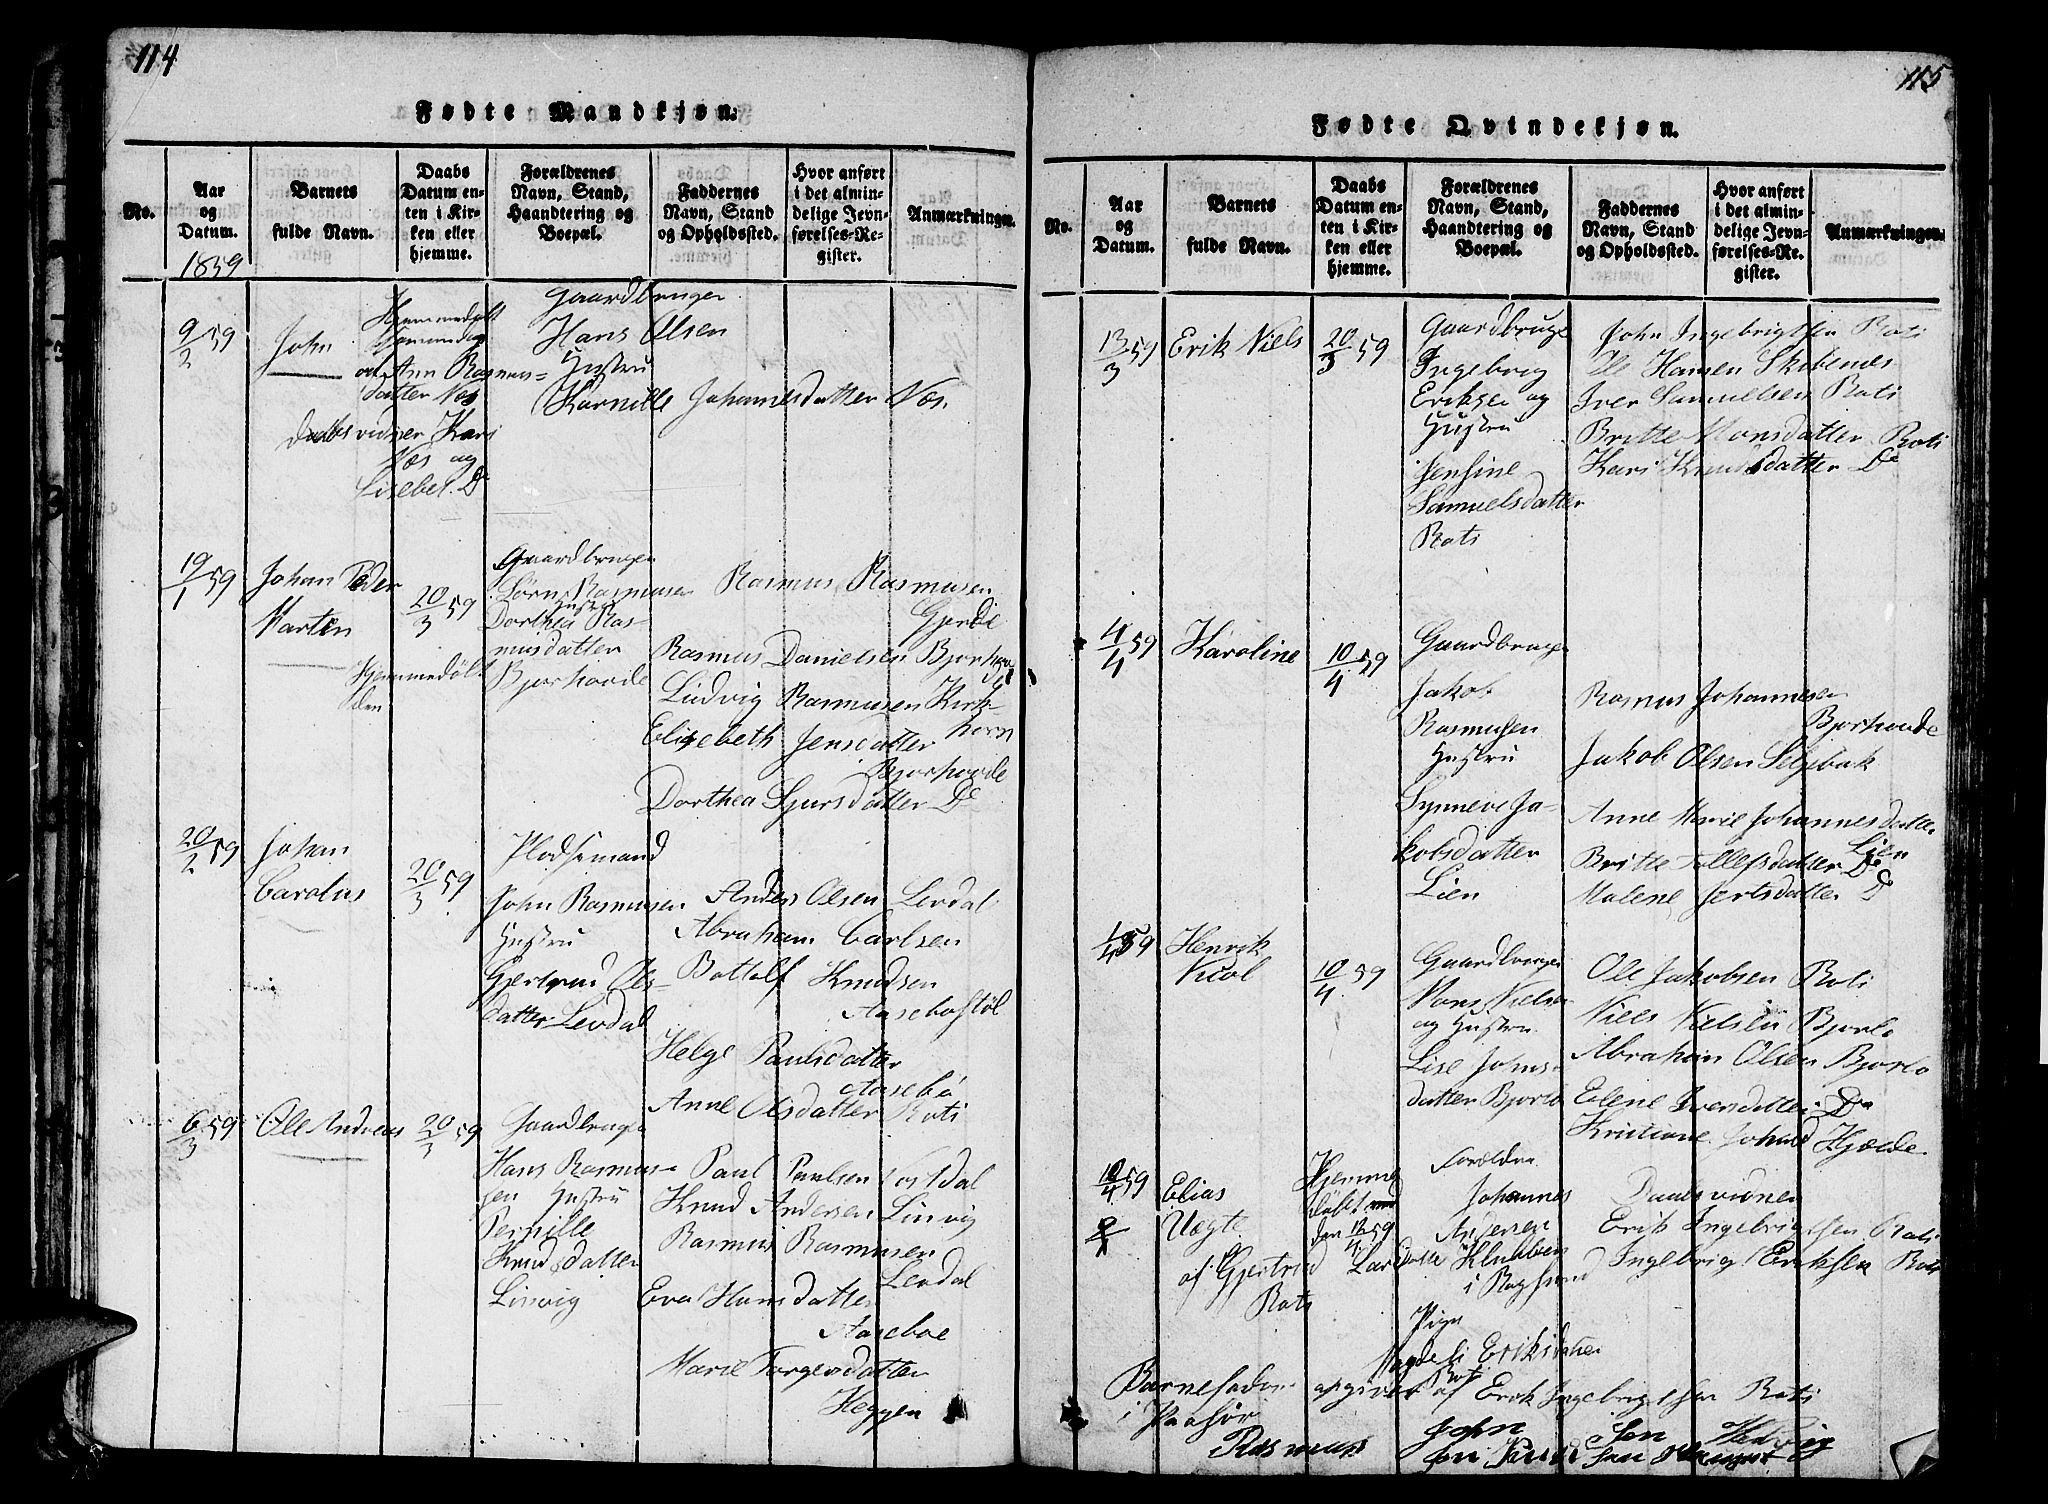 114
Fødte Mandkjøn.
No.
Aar
og
Datum.
Barnets
fulde Navn.
Daabs
Datum en-
ten i Kir-
ken eller
hjemme.
Forældrenes
Navn, Stand,
Haandtering og
Boepæl.
Faddernes
Navn, Stand
og Opholdssted.
Hvor anført
i det almin-
delige Jevn-
førelses-Re-
gister.
Anmærkninger.
1859
9/2 59
John
af Ann Rasmus-
datter Nøs
daabsvidner Kari
Nøs og
Lisebet Do
Gaardbruger
Hans Olsen
Hustru
Karnille Johannesdatter Nøs.
19/1 59
Johan Peder
Marten
Hjemmedøbt
den
20/3 59
Gaardbruger
Rasmusen
Hustru
Dorthea Ras-
musdatter
Bjorhovde
Rasmus Rasmusen
Gjerde
Rasmus Danielsen
Ludvig Rasmusen Kirk-
horn
Elisebeth Jensdatter
Bjorhovde
Dorthea Sjursdatter Do
20/2 59
Johan
Carolus
20/3 59
Pladsemand
John Rasmusen
Hustru
Gjertrud Ols-
datter Levdal
Anders Olsen Levdal
Abraham Carlsen
Bottolf Knudsen
Aasebøstøl
Helge Paulsdatter
Aasebø
Anne Olsdatter Roti
6/3 59
Ole Andreas
20/3 59
Gaardbruger
Hans Rasmus-
sen Hustru
Pernille
Knudsdatter
Linvig
Paul Paulsen
Knud Andersen Linvig
Rasmus Rasmusen
Levdal
Eva Hansdatter
Aaseboe
Marie Torgersdatter
Heggen
115
Fødte Qvindekjøn.
No.
Aar
og
Datum.
Barnets
fulde Navn.
Daabs
Datum en-
ten i Kir-
ken eller
hjemme.
Forældrenes
Navn, Stand,
Haandtering og
Boepæl.
Faddernes
Navn, Stand
og Opholdssted.
Hvor anført
i det almin-
delige Jevn-
førelses-Re-
gister.
Anmærkninger.
13/3 59
Erik Niels
20/3 59
Gaardbruge
Ingebrig
Eriksen og
Hustru
Jensine
Samuelsdatter
Roti
John Ingebrigtsen Roti
Ole Hansen Skobenes
Iver Samuelsen Roti
Britte Monsdatter Roti
Kari Knudsdatter Do
4/4 59
Karoline
10/4 59
Gaardbruger
Jakob
Rasmusen
Hustru
Synneve Ja-
kobsdatter
Lien
Rasmus Johannesen
Bjorhovde
Jakob Olsen Seljebak
Anne Marie Johannesdatter
Lien
Britte Do
Malene Do
59
Henrik
Nicol
10/4 59
Gaardbruger
Mons Nielsen
og Hustru
Lise Johns-
datter Bjorlo
Ole Jakobsen Roti
Niels Nielsen Bjorlo
Abraham Olsen Bjorlo
Elene Do
Kristiane Hjelde
10/4 59
Elias
Uegte
af Gjertrud
Roti
Hjemme
døbt
den 13/4 59
Forældre
Johannes
Andersen
Pige
Eriksdatter
Roti
Daabsvidner
Erik Ingebrigtsen Roti
Ingebrig Eriksen Roti
Barnefader opgivet af Erik Ingebrigtsen Roti
Rasmus
John